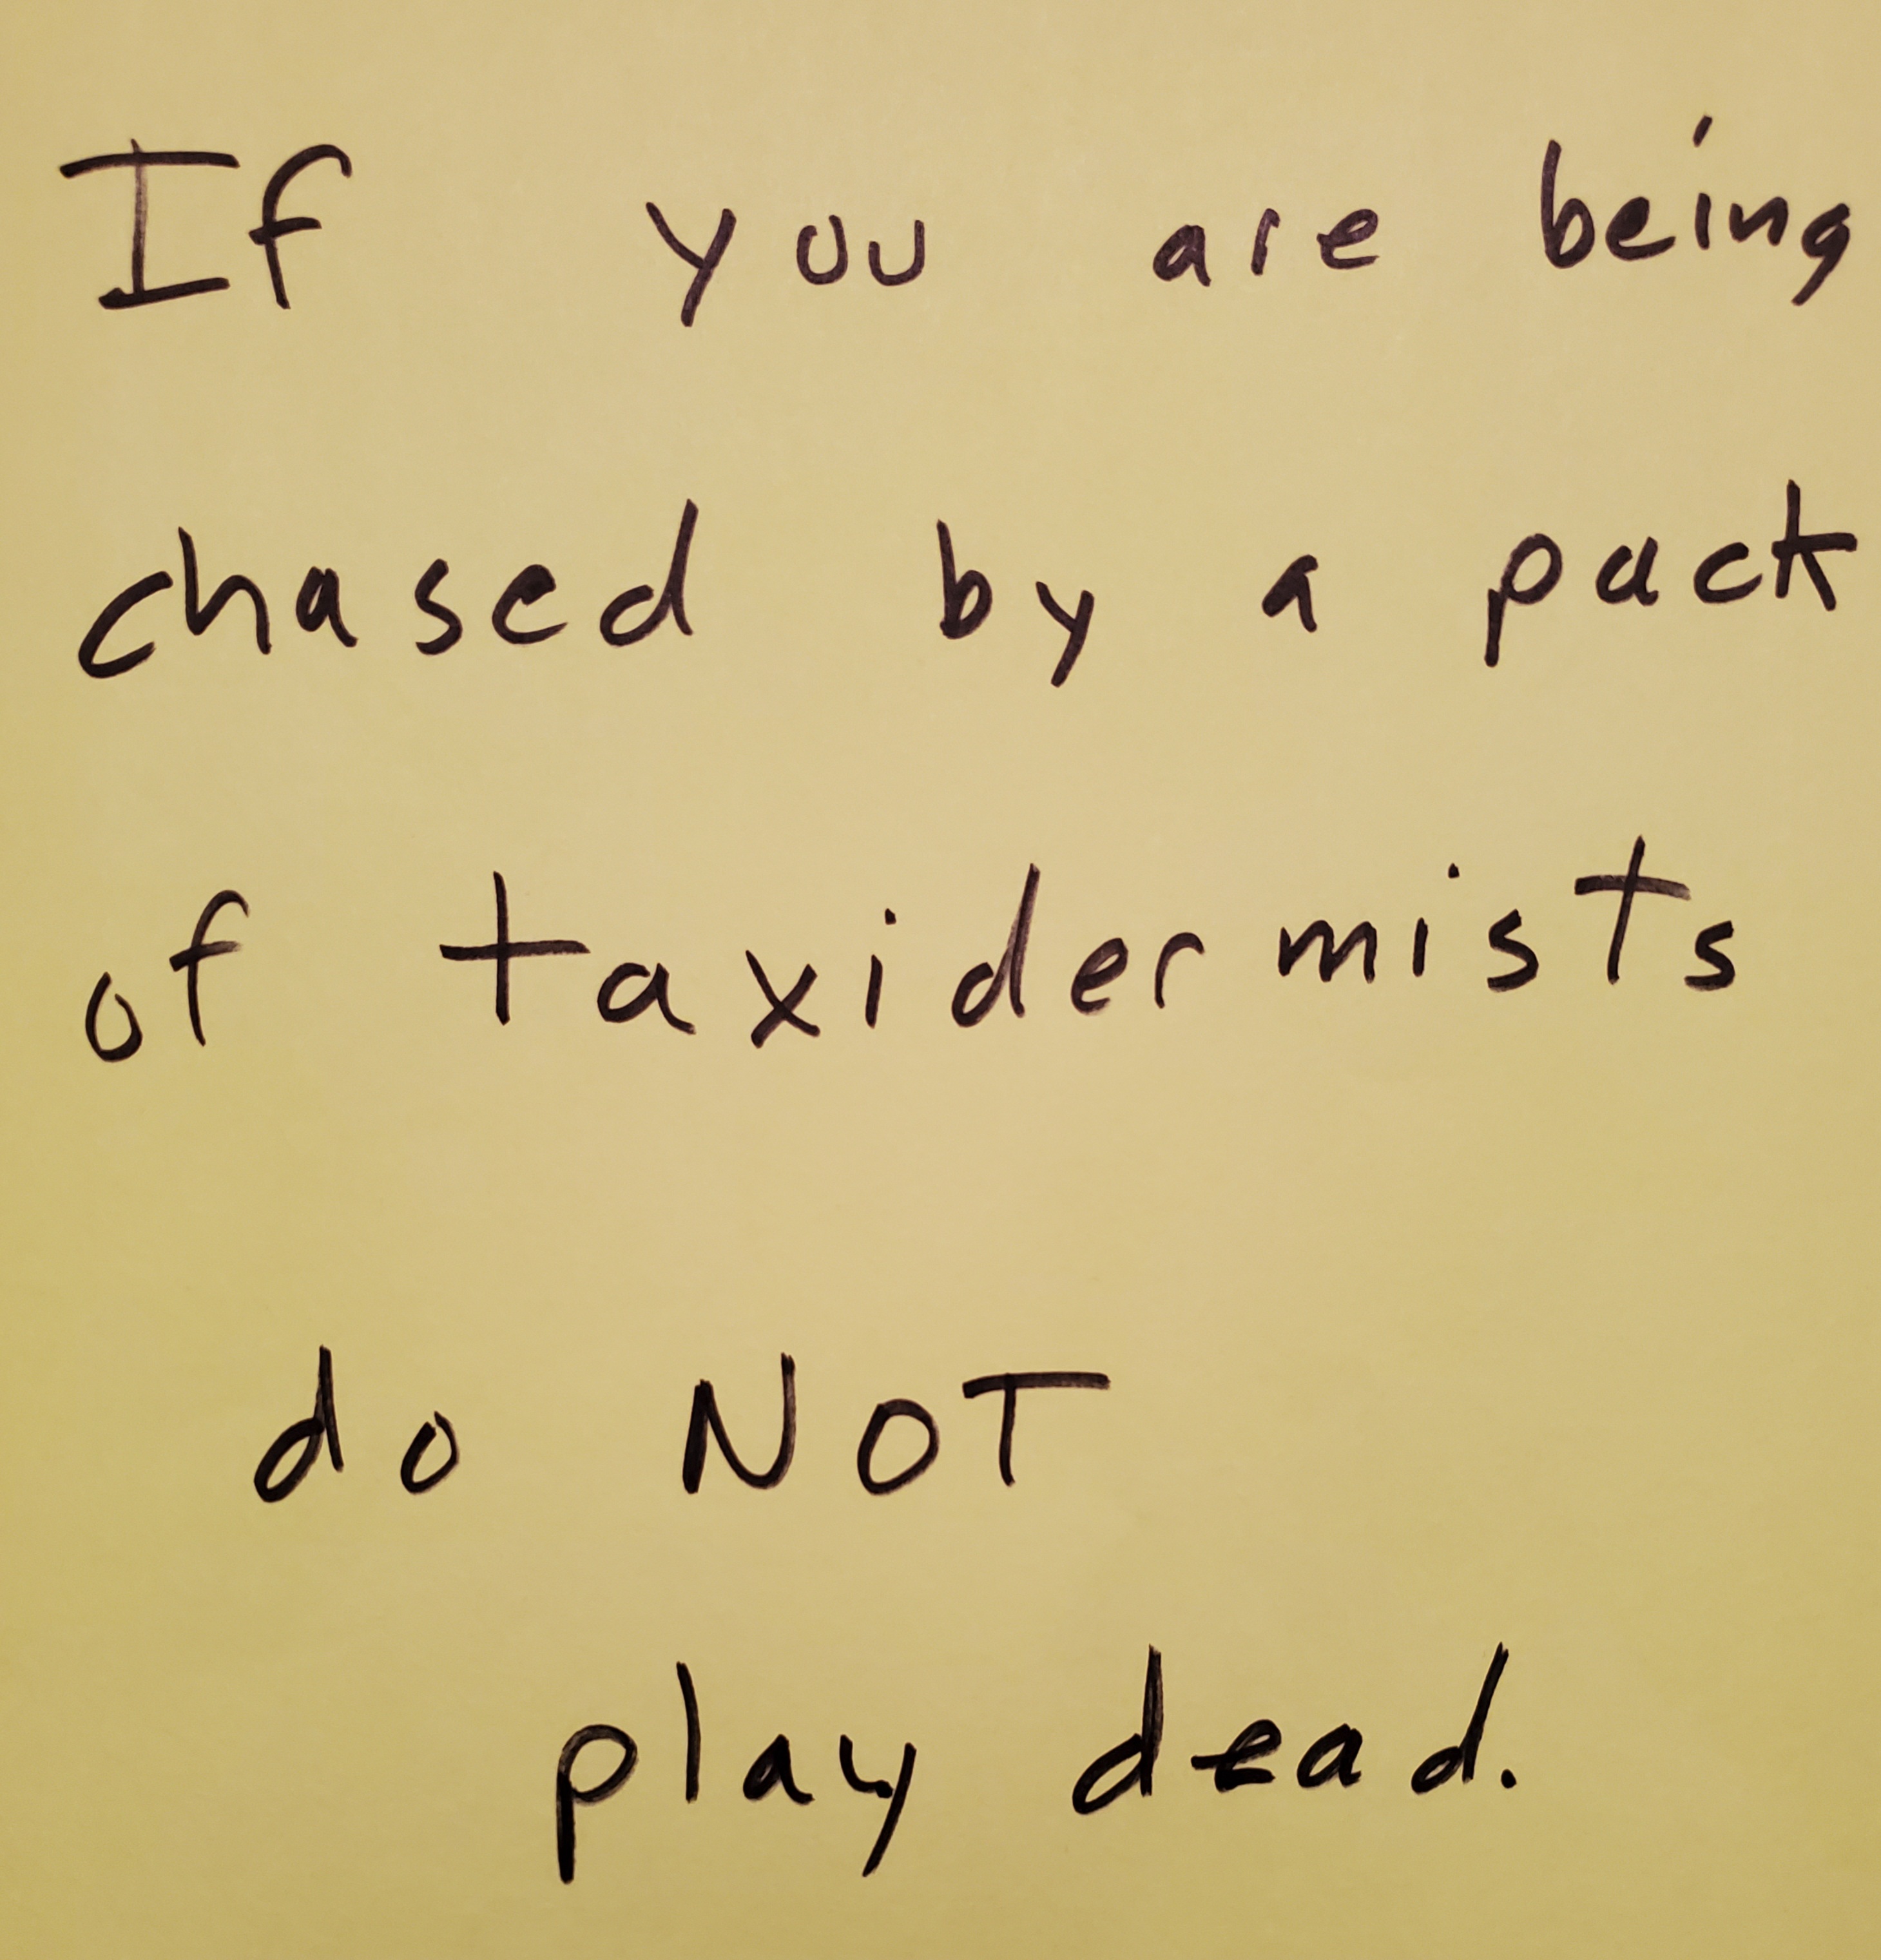 If you are being
chased by a pack
of taxidermists
do NOT
play dead.